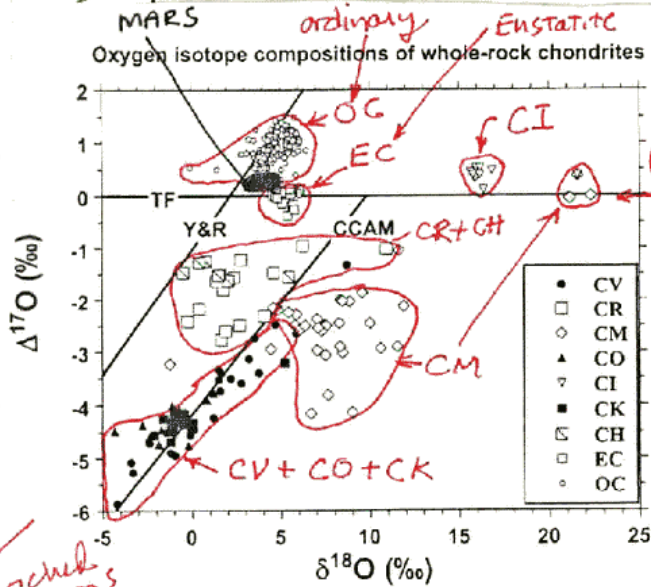 MARS
ordinary
Enstatite
Oxygen isotope compositions of whole-rock chondrites
OC
CI
EC
TF
Y&R
CCAM
CR+CH
CM
CV+CO+CK
Δ17O (‰)
2
1
0
-1
-2
-3
-4
-5
-6
-5
0
5
10
15
20
25
δ18O (‰)
CV
CR
CM
CO
CI
CK
CH
EC
OC